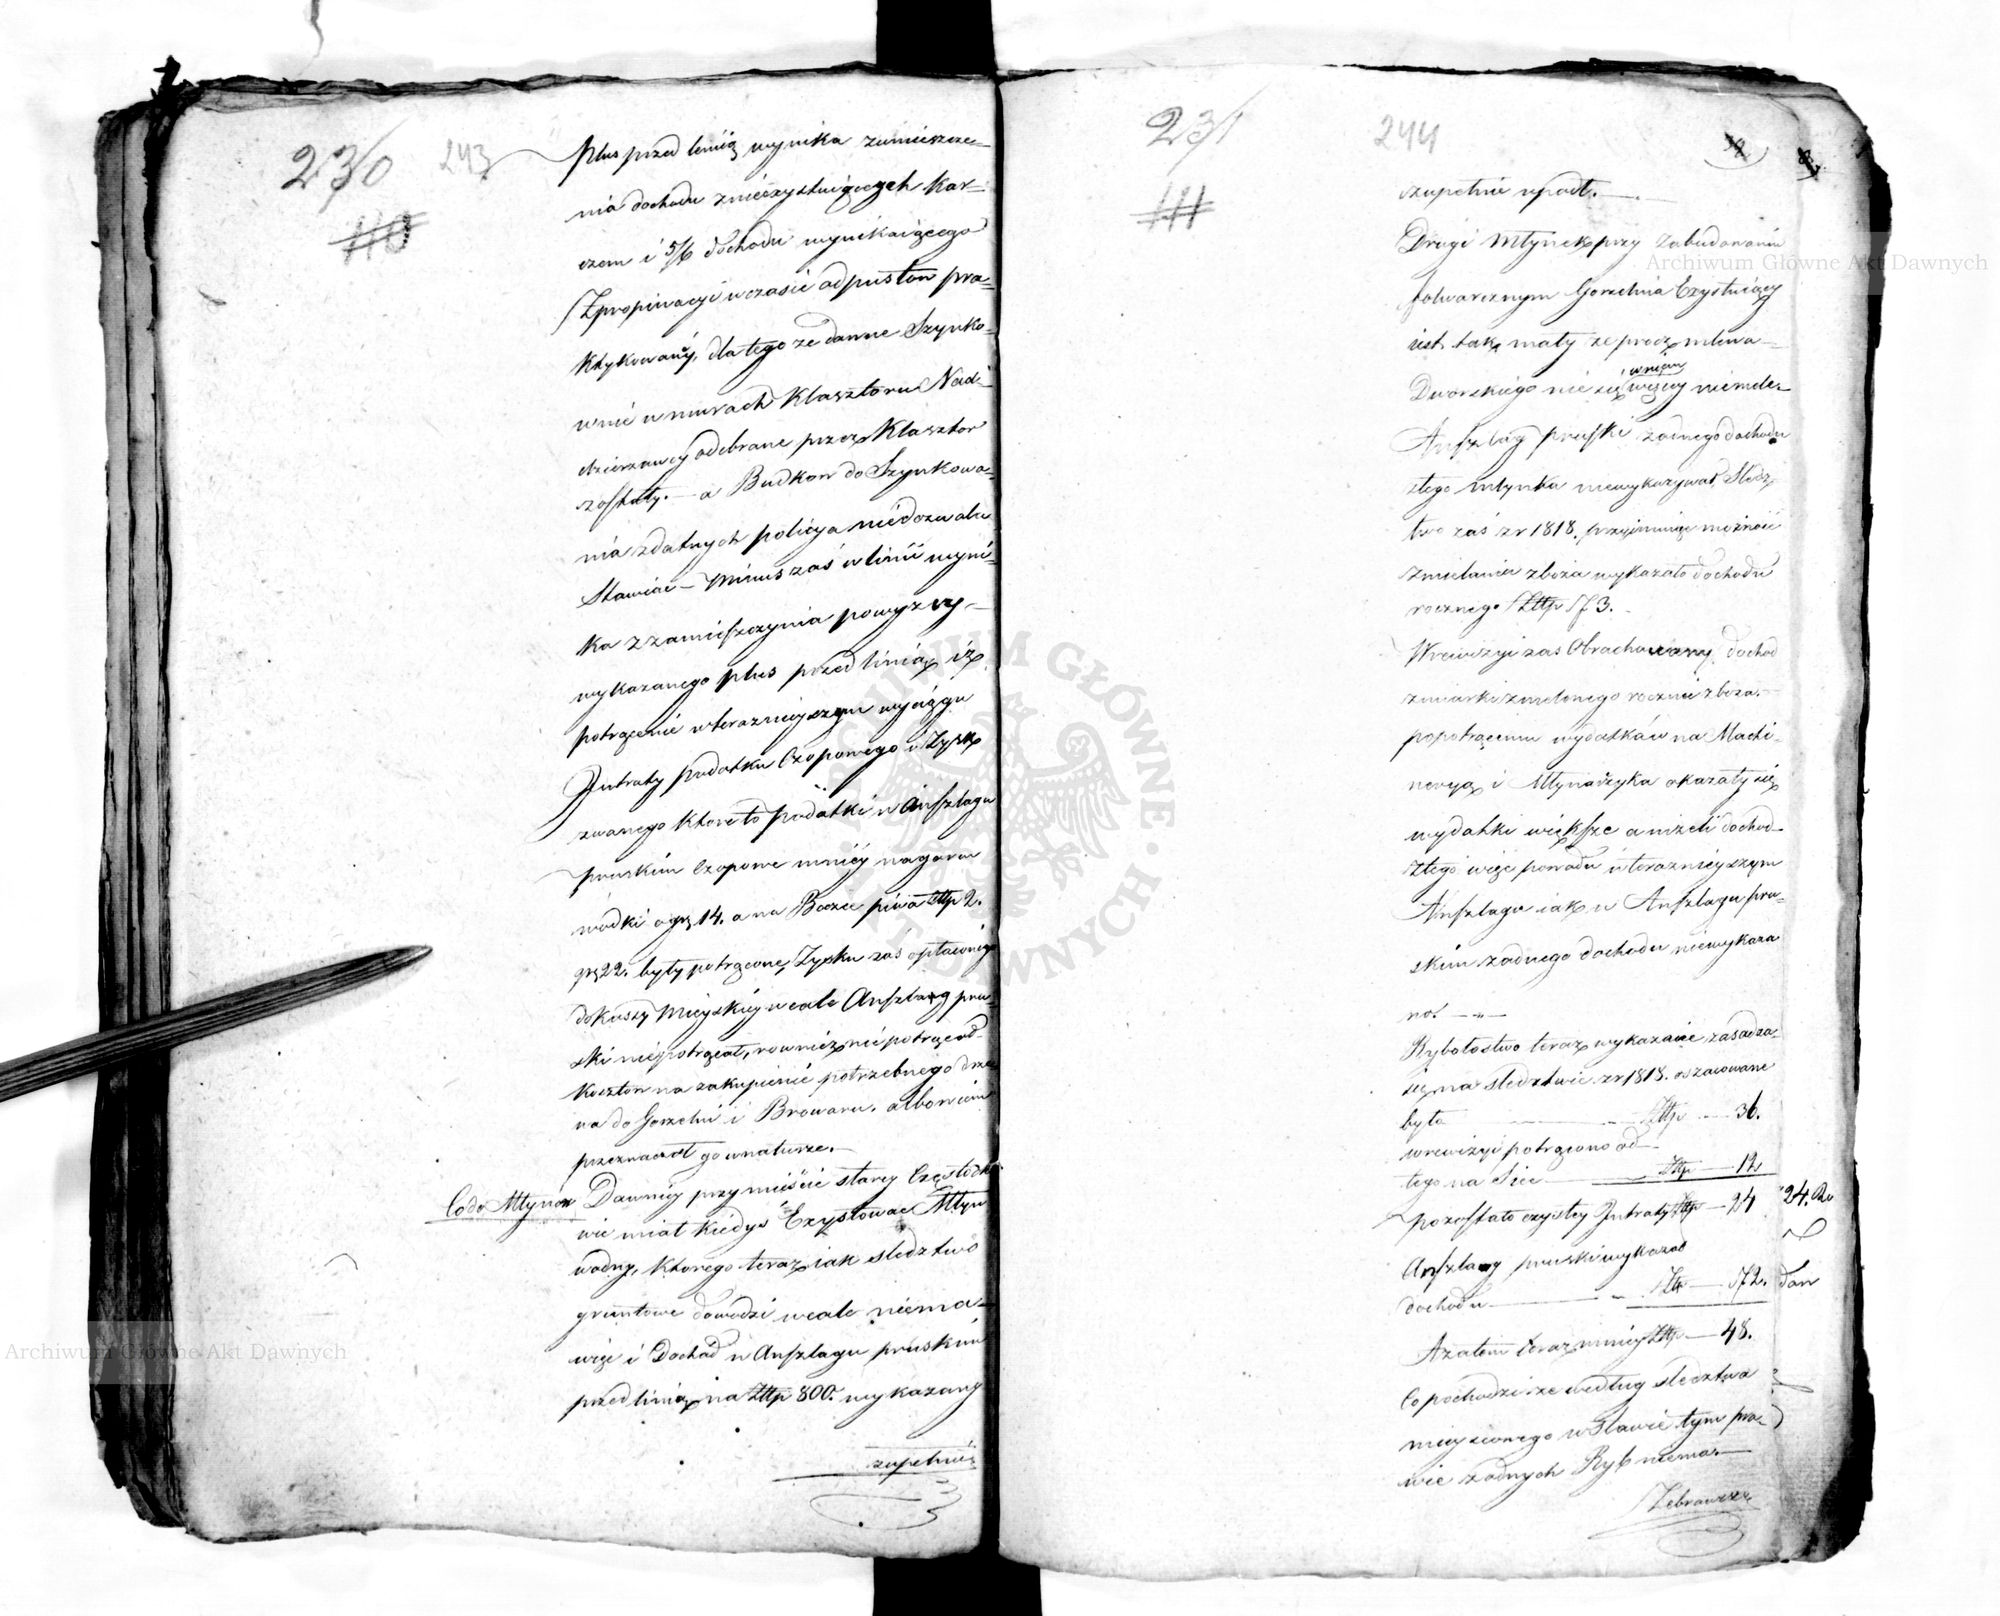 230 243
110
plus przed linią wynika zumieszcze-
nia dochodu znieexystuiących Kar-
czem i 5/6 dochodu wynikaiącego
Z propinacyi w czasie odpustow pra-
ktykowany, dla tego że danne Szynko-
wnie w murach Klasztoru Nad-
dzierzawcy odebrane przez Klasztor
zostały. — a Budkow do Szynkowa-
nia zdatnych policya niedozwala
Stawiac — Minus zaś w linii wyni-
ka z zamieszczynia powyzey
wykazanego plus przed linią, iż
potrącenie w teraznieyszym wyciągu
Intraty podatku Czopowego i Zysk
zwanego które to podatki w Anszlagu
pruskim Czopowe mniey na garcu
wodki o gr 14. a na Beczce piwa Złtp 2.
gr 22. były potrącone, Zysku zaś opłaconego
do Kassy Mieyskiey wcale Anszlag pru-
ski niepotrącał, rownież nie potrącał
kosztow na zakupienie potrzebnego drze-
wa do Gorzelni i Browaru, albowiem
przeznaczał go w naturze. —
Co do Młynów Dawniey przy mieście starey Częstocho-
wie miał kiedyś Exystować Młyn
wodny, którego teraz iak sledztwo
gruntowe dowodzi wcale niema
więc i Dochód w Anszlagu pruskim
przed linią na Złtp 800. wykazany
zupełnie
231 244
111
zupełnie upadł. —
Drugi Młynek przy Zabudowaniu
folwarcznym Gorzelnia Exystuiący
iest tak mały ze procz mliwa
w nim
Dworskiego nic się więcey niemele
Anszlag pruski żadnego dochodu
z tego młynka niewykazywał, Sledz-
two zaś z r 1818. przyimuiąc możność
zmielania zboża wykazało dochodu
rocznego Złtp 573. —
W rewizyi zas Obrachowany dochod
z miarki zmelonego rocznie zboża
po potrąceniu wydatków na Machi-
neryą i Młynarzyka okazały się
wydatki większe aniżeli dochod
z tego więc powodu w terazniejszym
Anszlagu iak w Anszlagu pru-
skim żadnego dochodu niewykaza
no. — „ —
Rybołostwo teraz wykazanie zasadza
się na sledztwie z r 1818. oszacowane
było — Złtp — 36.
w rewizyi potrącono od
tego na Sieci — Złtp — 12
pozostało czystey Intraty Złtp — 24 24. Zło
Anszlag pruski wykazał
dochodu — Złtp — 72. dan
A zatem teraz mniey Złtp — 48.
Co pochodzi że według sledztwa
mieyscowego w Stawie tym pra-
wie żadnych Ryb niema. —
Zebrawszy